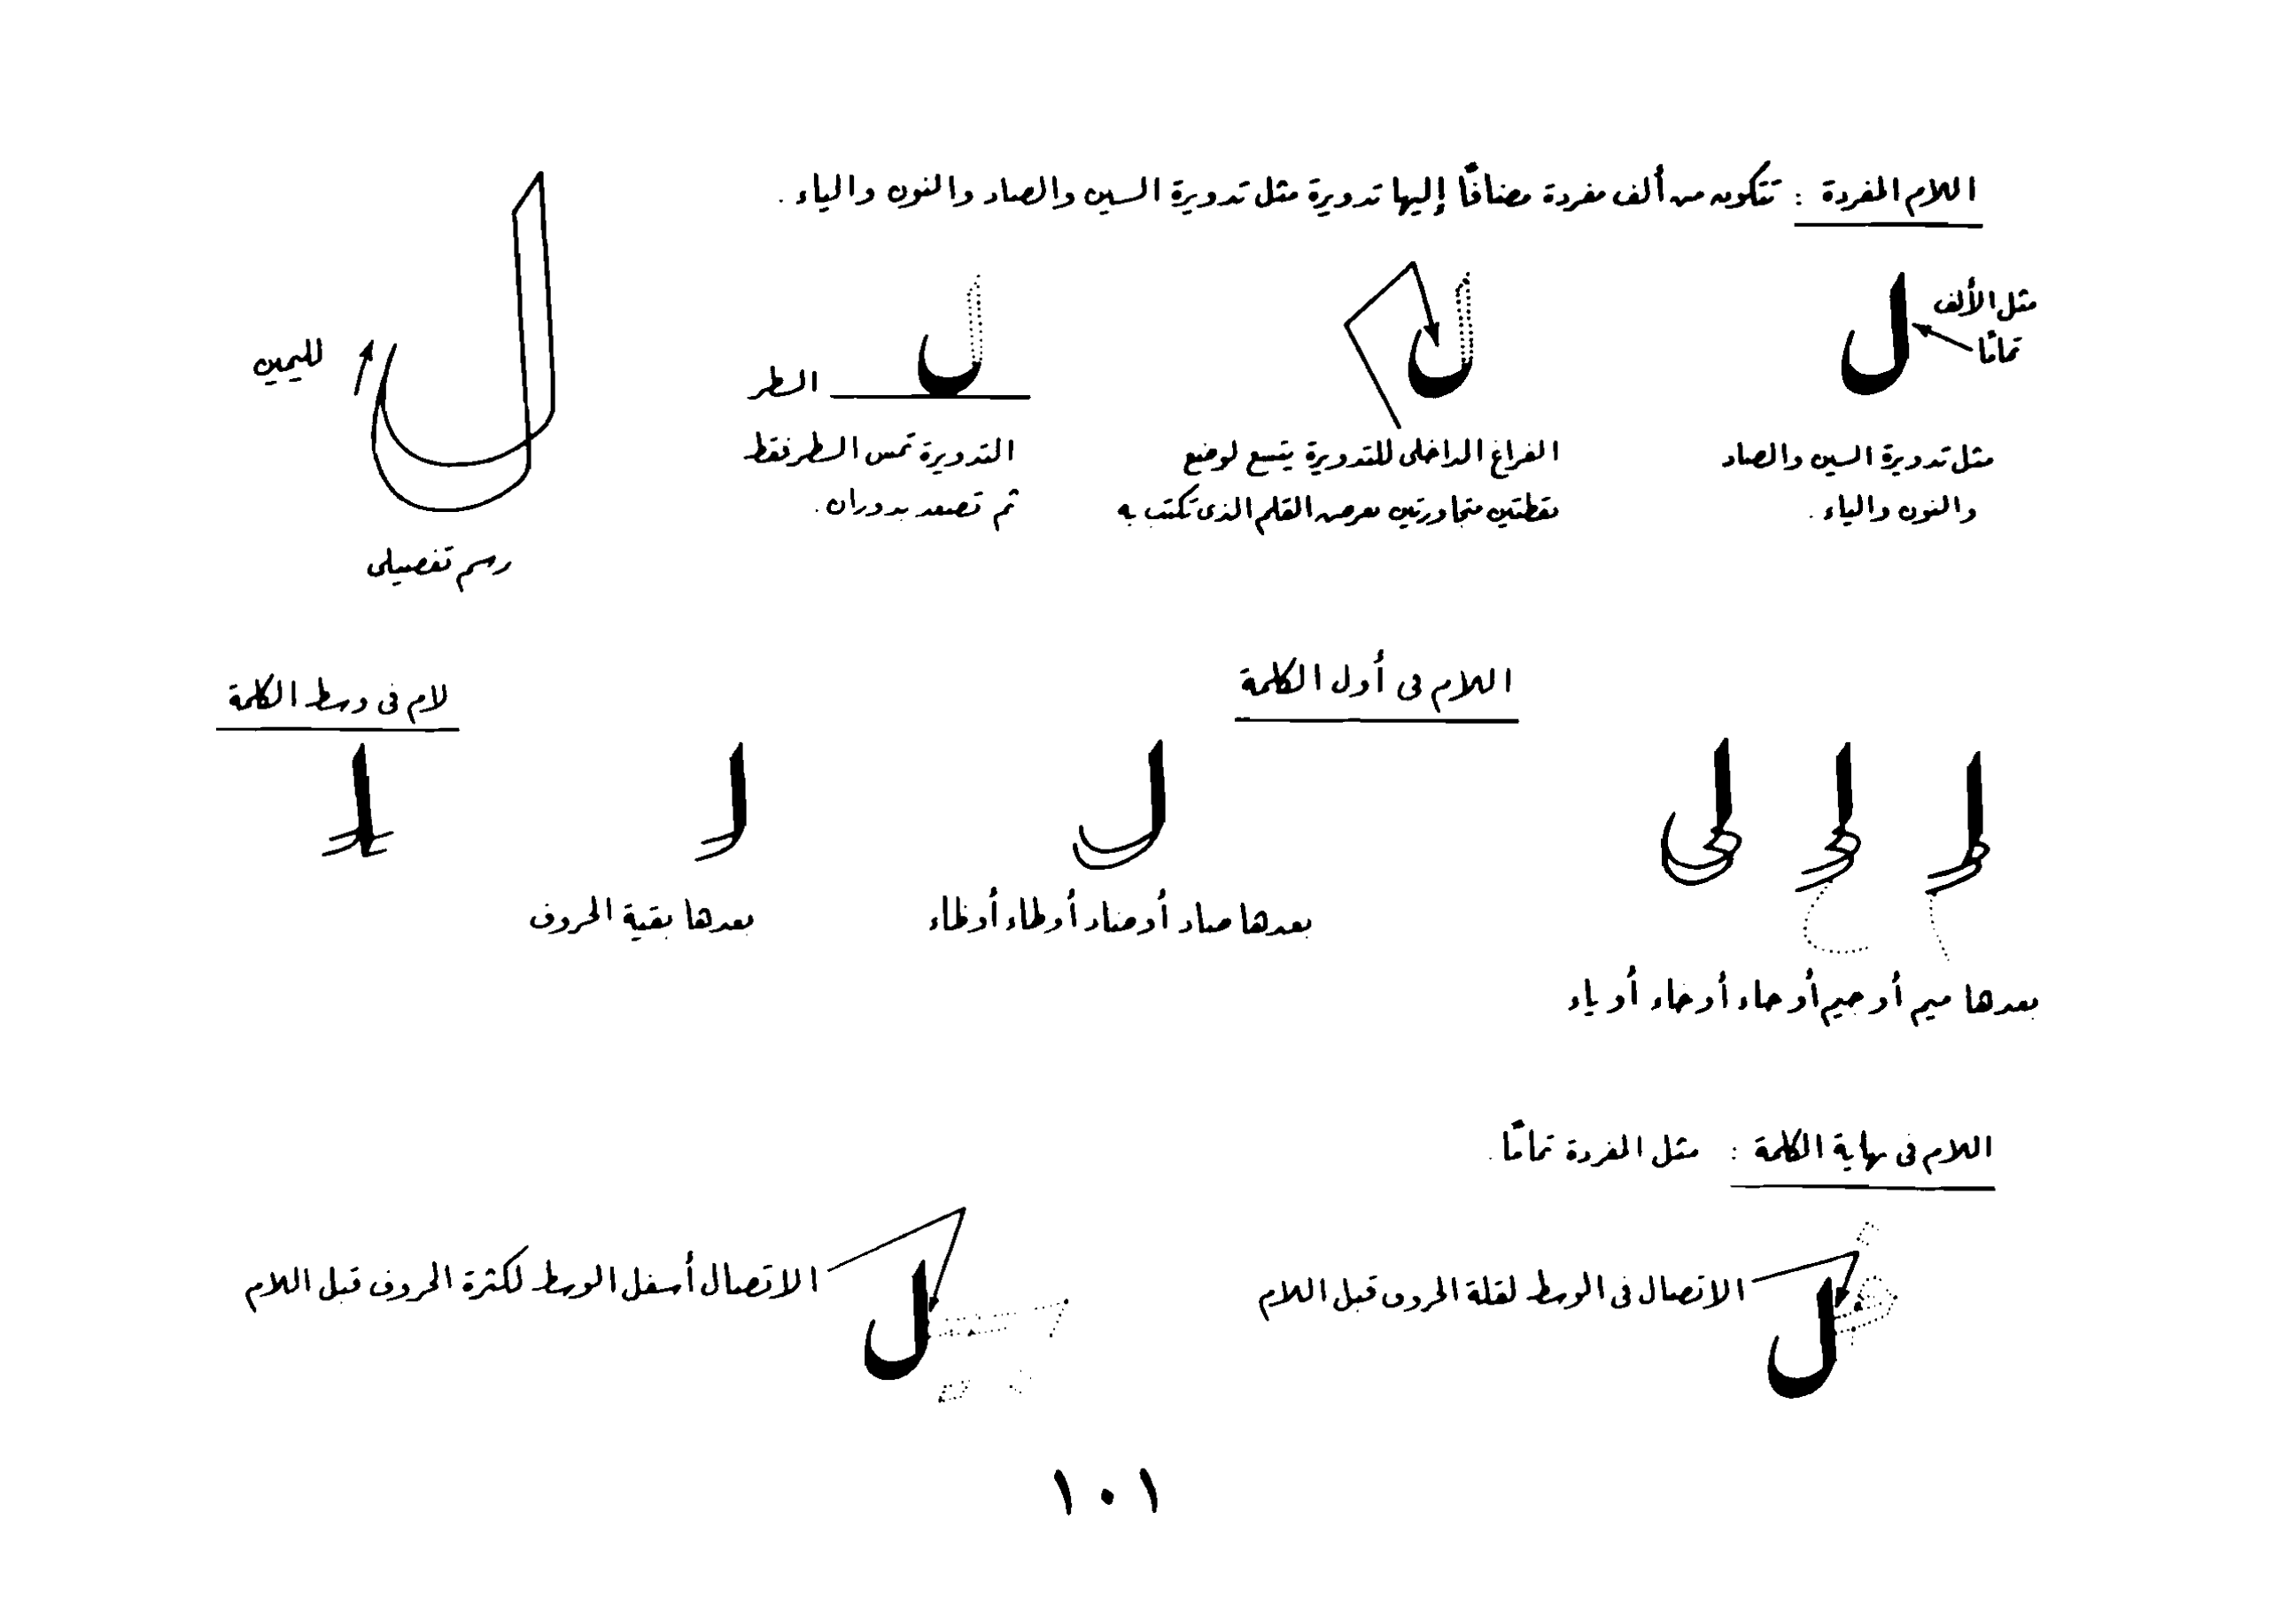 اللام المفردة : تتكون من ألف مفردة مضافًا إليها تدويرة مثل تدويرة السين والصاد والنون والياء .
مثل الألف
تمامًا
مثل تدويرة السين والصاد
والنون والياء .
الفراغ الداخلى للتدويرة يتسع لوضع
نقطتين متجاورتين بعرض القلم الذى تكتب به
السطر
التدويرة تمس السطر فقط
ثم تصعد بدوران .
لليمين
رسم تفصيلى
اللام فى أول الكلمة
بعدها ميم أو جيم أو حاء أو خاء أو ياء
بعدها صاد أو ضاد أو طاء أو ظاء
بعدها بقية الحروف
لام فى وسط الكلمة
اللام فى نهاية الكلمة : مثل المفردة تمامًا .
الاتصال فى الوسط لقلة الحروف قبل اللام
الاتصال أسفل الوسط لكثرة الحروف قبل اللام
١٠١